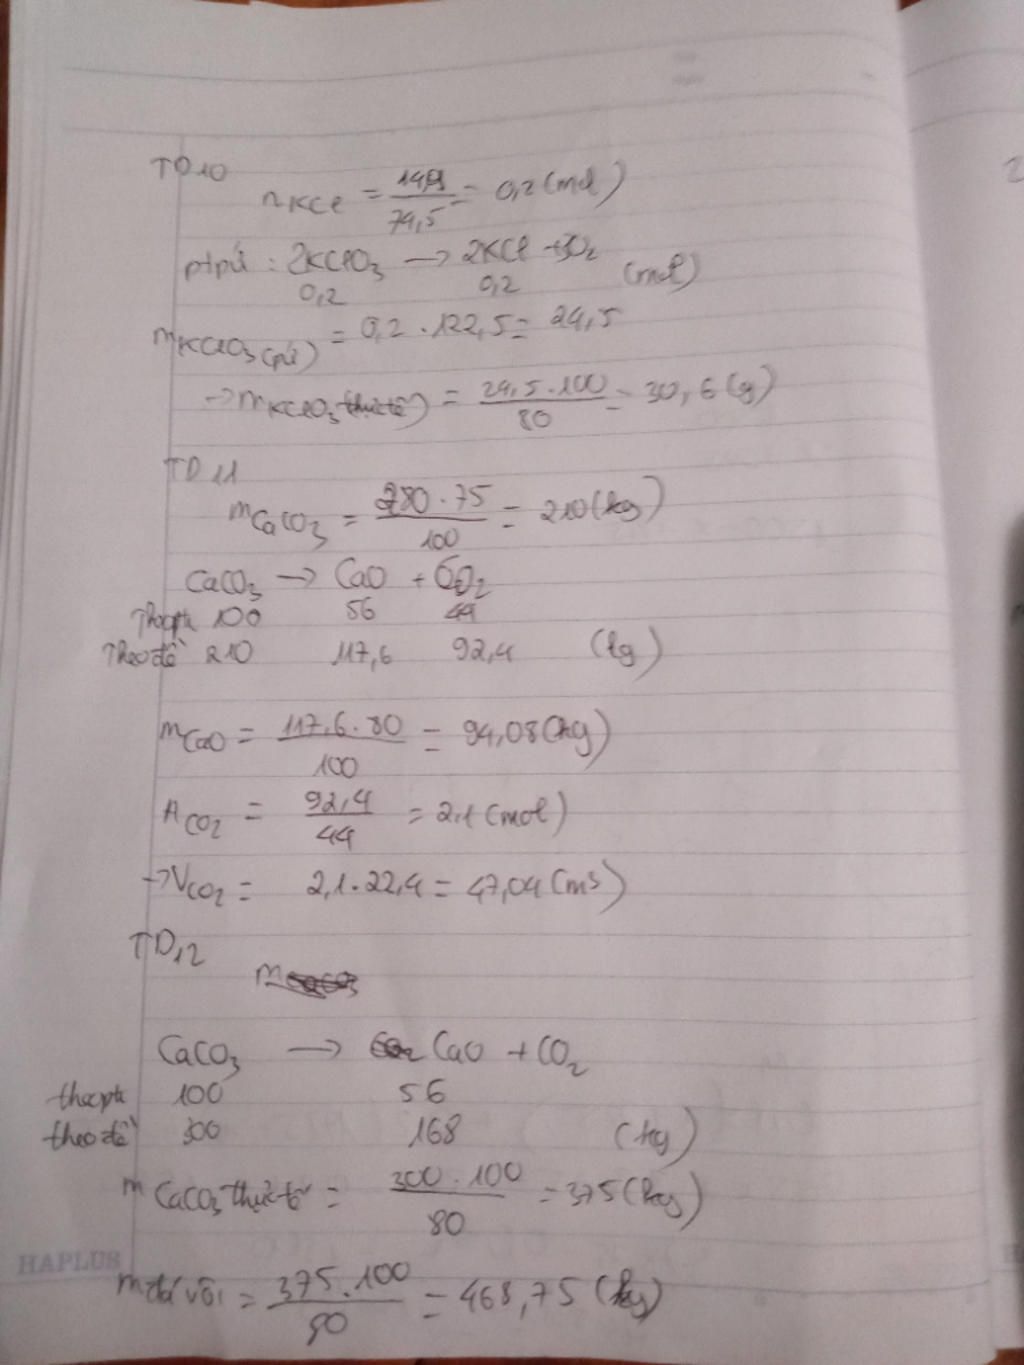 TD10
nKCl = 14,9/74,5 = 0,2 (mol)
ptpứ : 2KClO3 → 2KCl + 3O2
0,2 0,2 (mol)
mKClO3 (pứ) = 0,2 . 122,5 = 24,5
→ mKClO3 thực tế) = 24,5.100/80 = 30,6 (g)
TD11
mCaCO3 = 280.75/100 = 210 (kg)
CaCO3 → CaO + CO2
Theopth 100 56 44
Theo đề 210 117,6 92,4 (kg)
mCaO = 117,6.80/100 = 94,08 (kg)
nCO2 = 92,4/44 = 2,1 (mol)
→ VCO2 = 2,1.22,4 = 47,04 (m3)
TD12
m
CaCO3 → CaO + CO2
theopth 100 56
theo đề 300 168 (kg)
mCaCO3 thực tế = 300.100/80 = 375 (kg)
HAPLUS
mđá vôi = 375.100/80 = 468,75 (kg)